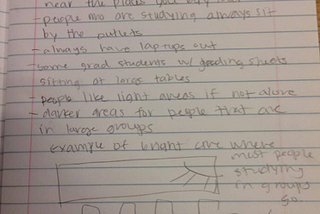 near the places you
- people who are studying always sit
by the outlets
- always have laptops out
- some grad students w/ grading sheets
sitting at large tables
- people like light areas if not alone
- darker areas for people that are
in large groups
example of bright are where
most people
studying
in groups
go.